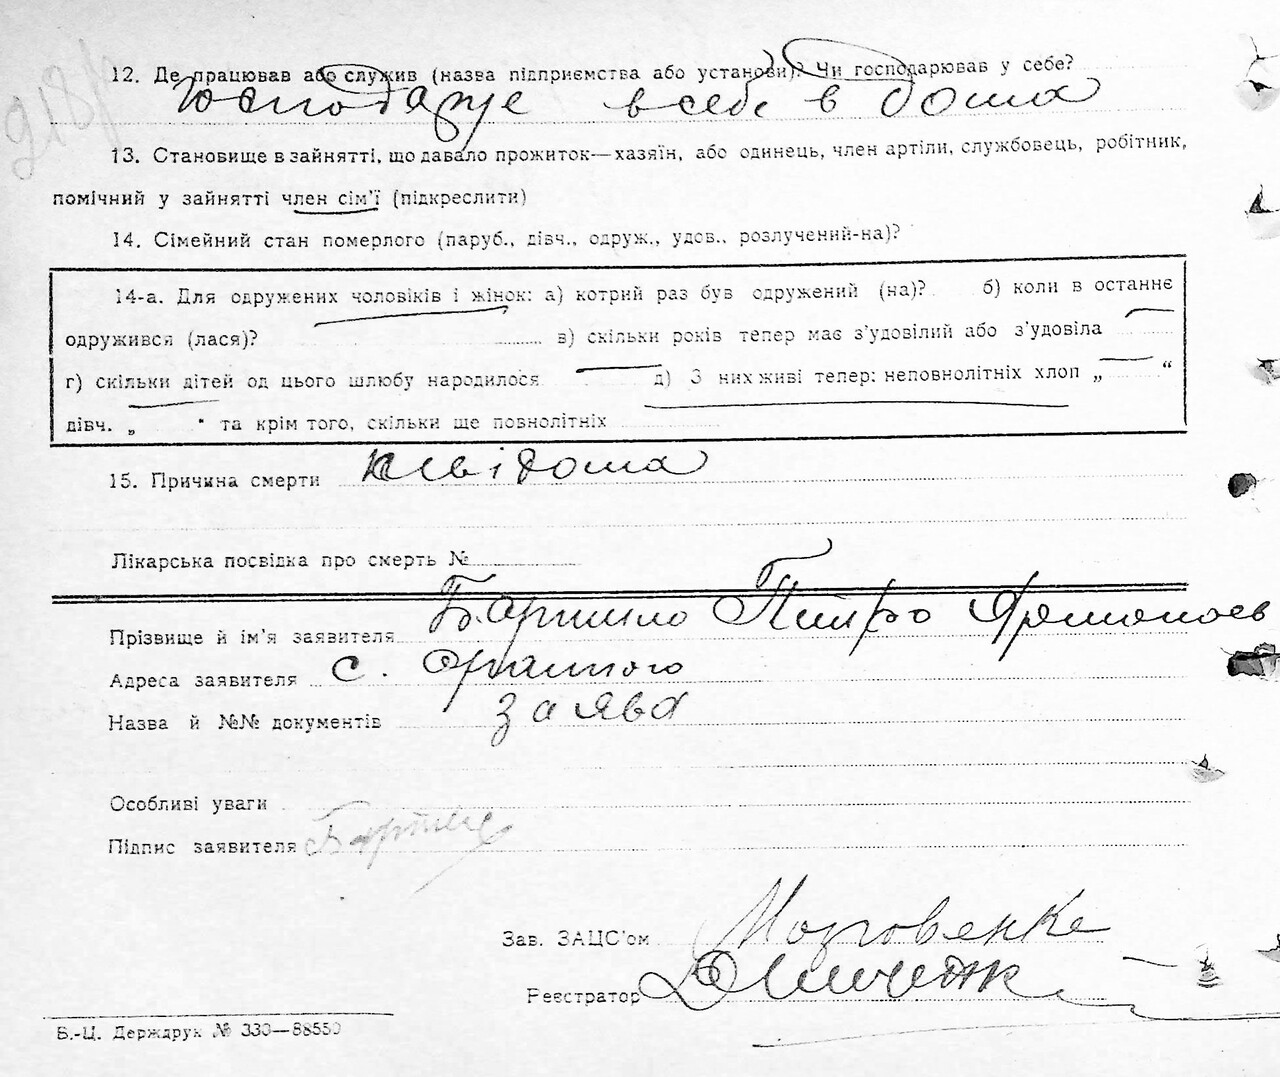 218
12. Де працював або служив (назва підприємства або установи)? Чи господарював у себе?
Господарує в себе в дома
13. Становище в зайнятті, що давало прожиток—хазяїн, або одинець, член артіли, службовець, робітник,
помічний у зайнятті член сім'ї (підкреслити)
14. Сімейний стан померлого (паруб., дівч., одруж., удов., розлучений-на)?
14-а. Для одружених чоловіків і жінок: а) котрий раз був одружений (на)? б) коли в останнє
одружився (лася)? в) скільки років тепер має з'удовілий або з'удовіла
г) скільки дітей од цього шлюбу народилося д) З них живі тепер: неповнолітніх хлоп „ “
дівч. „ “ та крім того, скільки ще повнолітніх
15. Причина смерти
Лікарська посвідка про смерть №
Прізвище й ім'я заявителя Петро
Адреса заявителя с.
Назва й №№ документів заява
Особливі уваги
Підпис заявителя
Зав. ЗАЦС'ом
Реєстратор
Б.-Ц. Держдрук № 330—88550